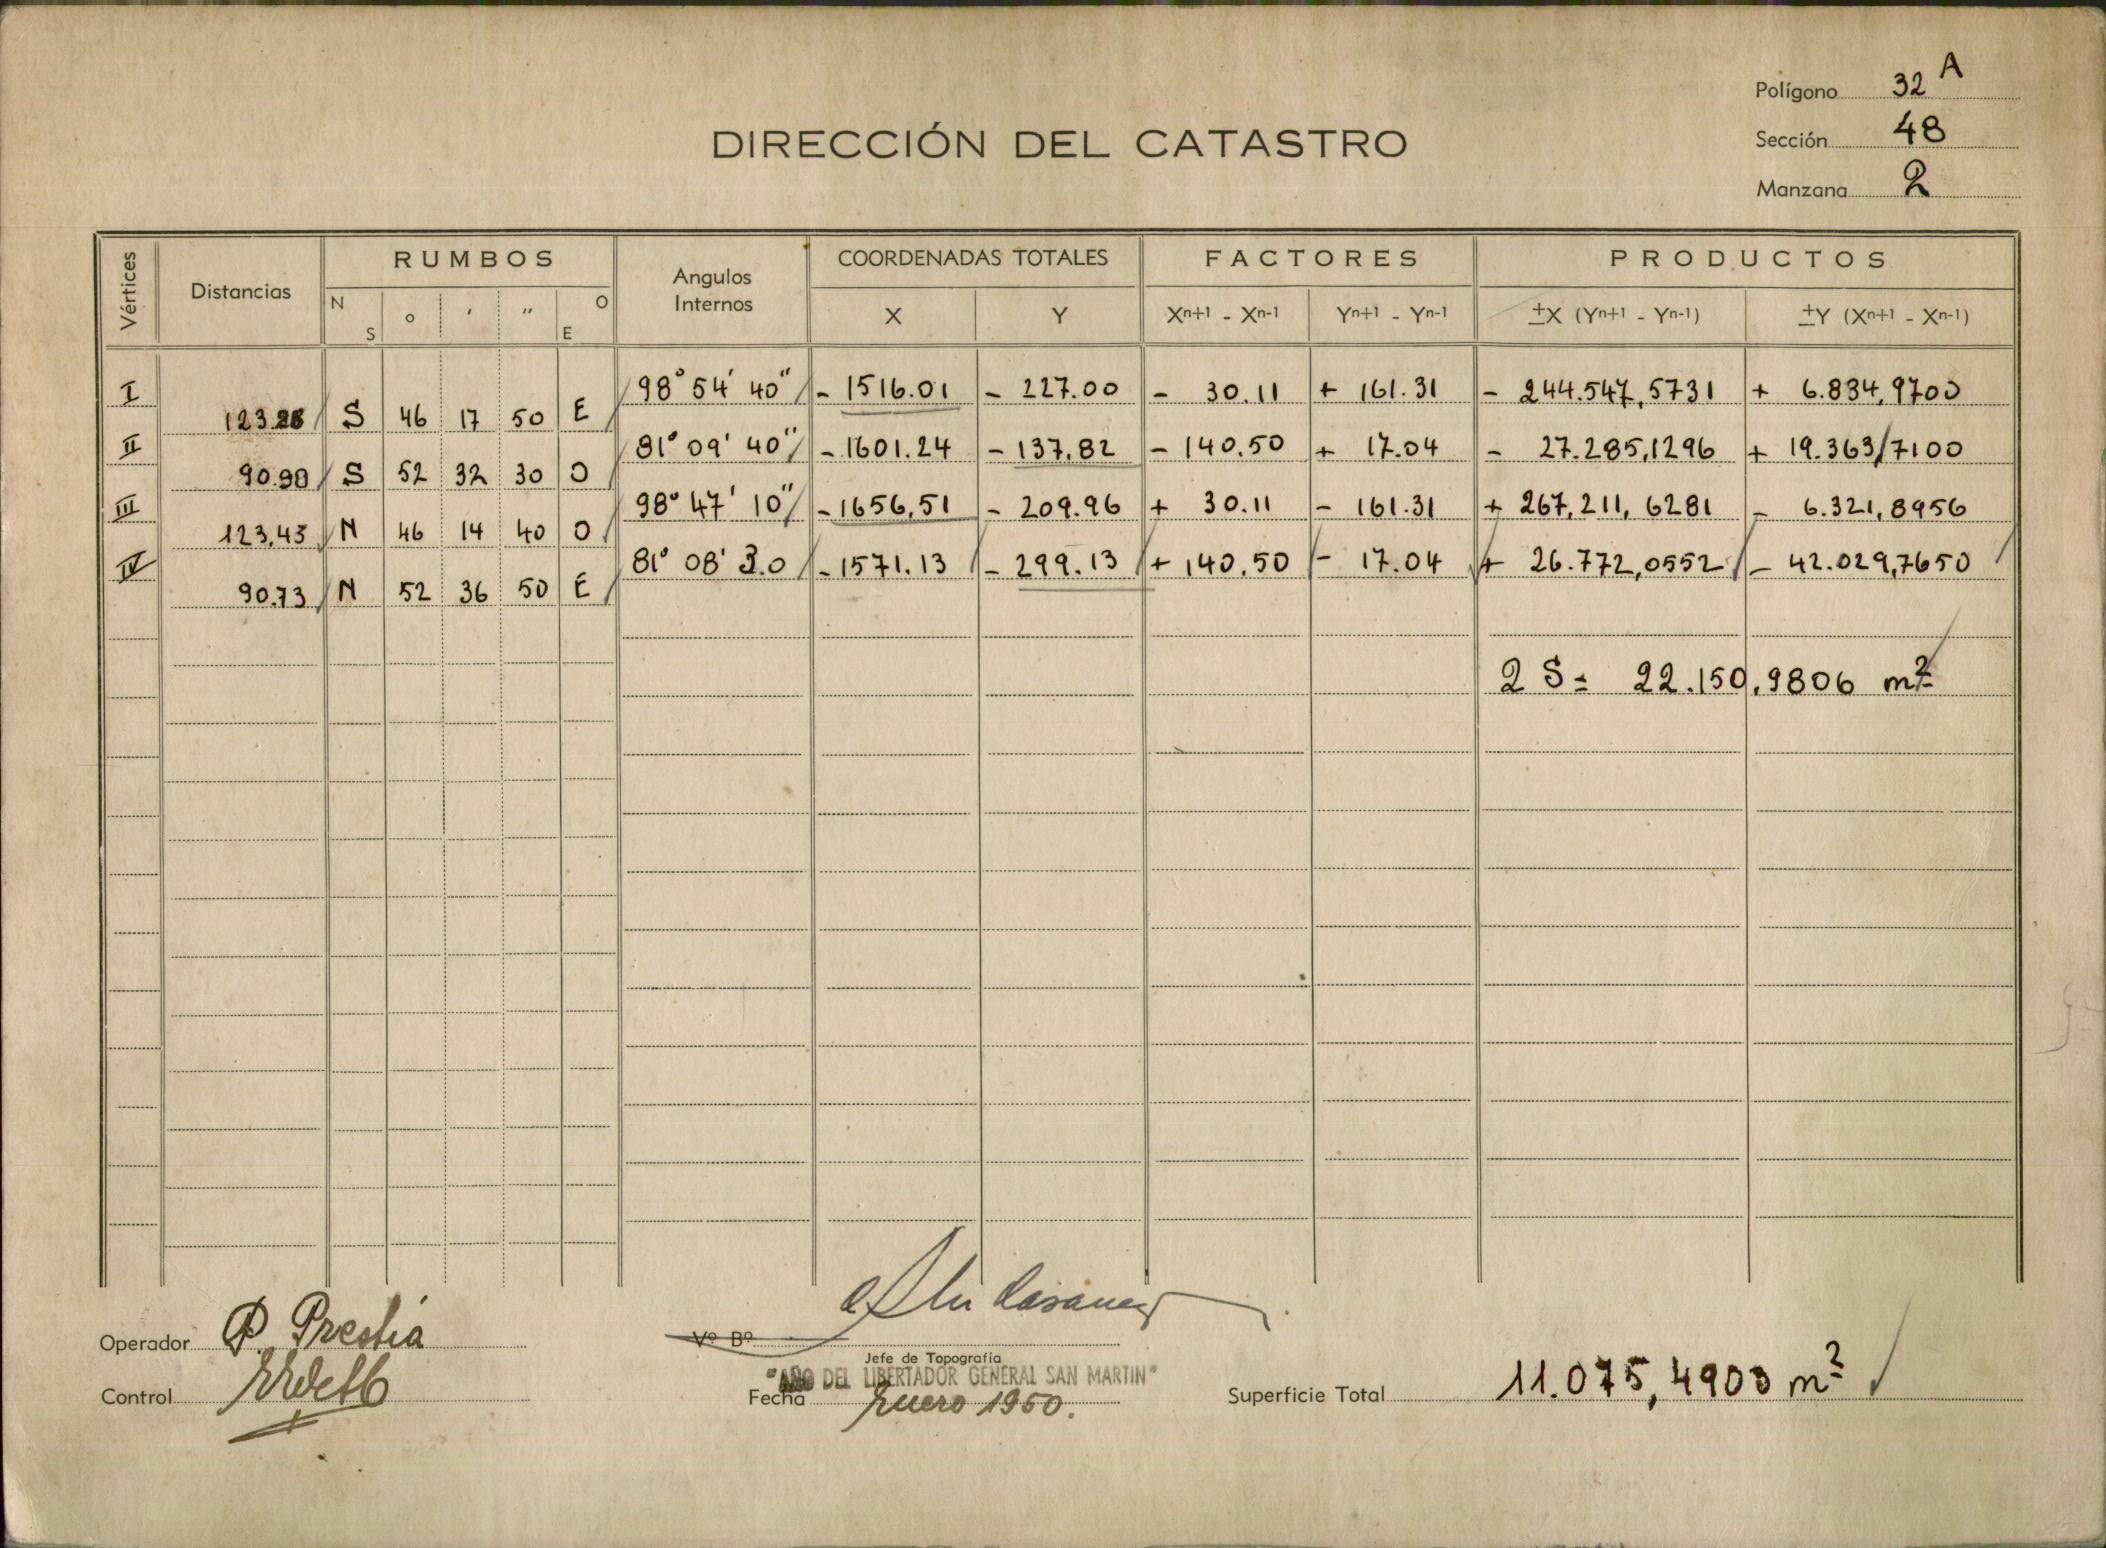 Polígono 32 A
DIRECCIÓN DEL CATASTRO
Sección 48
Manzana 2
Vértices Distancias RUMBOS Angulos Internos COORDENADAS TOTALES FACTORES PRODUCTOS
N S ° ′ ″ O E X Y Xn+1 - Xn-1 Yn+1 - Yn-1 ±X (Yn+1 - Yn-1) ±Y (Xn+1 - Xn-1)
I 98° 54' 40" - 1516.01 - 227.00 - 30.11 + 161.31 - 244.547,5731 + 6.834,9700
S 46 17 50 E
II 81° 09' 40" - 1601.24 - 137.82 - 140.50 + 17.04 - 27.285,1296 + 19.363,7100
90.98 S 52 32 30 O
III 98° 47' 10" - 1656,51 - 209.96 + 30.11 - 161.31 + 267,211,6281 - 6.321,8956
123,43 N 46 14 40 O
IV 81° 08' 30 - 1571.13 - 299.13 + 140.50 - 17.04 + 26.772,0552 - 42.029,7650
90.73 N 52 36 50 E
2 S = 22.150,9806 m²
Operador P. Prestia
Vº Bº
Jefe de Topografía
"AÑO DEL LIBERTADOR GENERAL SAN MARTIN"
Control
Fecha Enero 1950.
Superficie Total 11.075,4903 m²